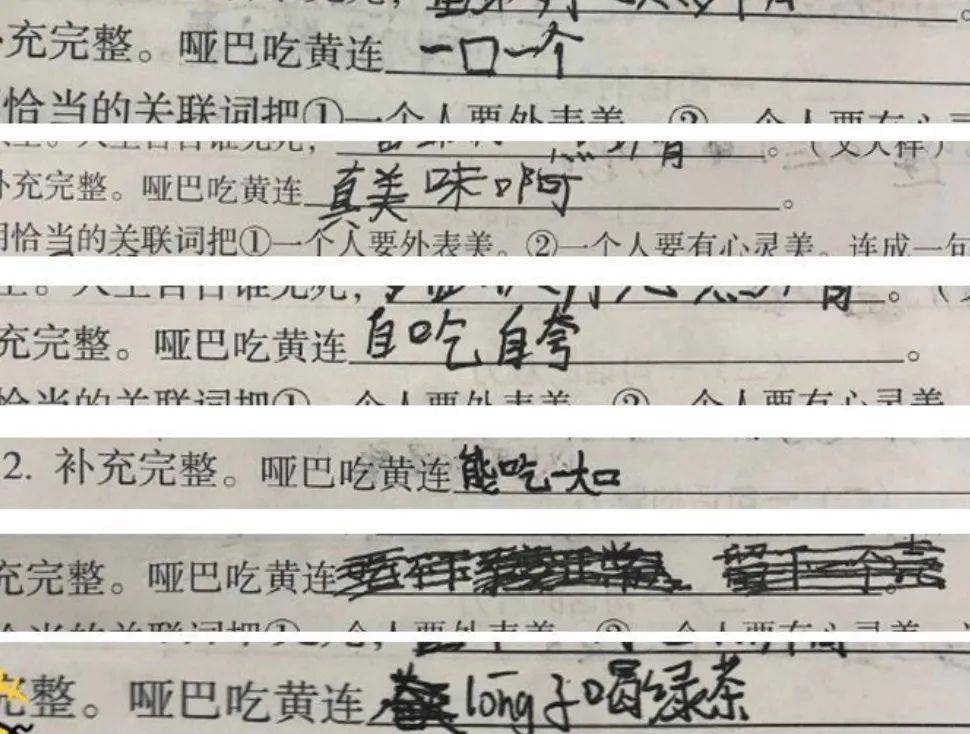 充完整。哑巴吃黄连 一口一个
恰当的关联词把①一个人要外表美。②一个人要有心灵
真美味啊
补充完整。哑巴吃黄连 。
用恰当的关联词把①一个人要外表美。②一个人要有心灵美。连成一句
充完整。哑巴吃黄连 自吃自夸 。
恰当的关联词把①一个人要外表美。②一个人要有心灵美
2. 补充完整。哑巴吃黄连 能吃一大口
充完整。哑巴吃黄连 留下一个壳。
整。哑巴吃黄连 lōng子喝绿茶